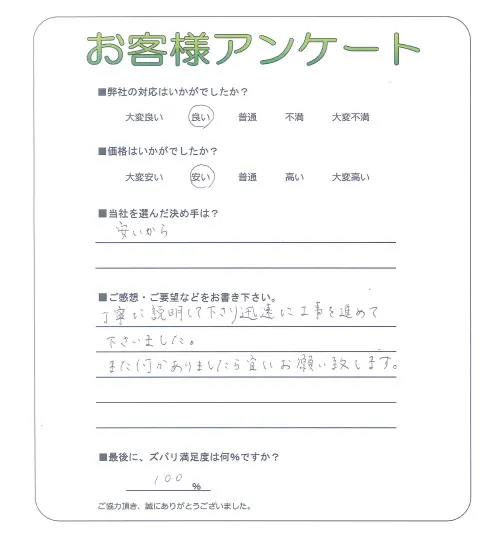 お客様アンケート
■弊社の対応はいかがでしたか？
大変良い 良い 普通 不満 大変不満
■価格はいかがでしたか？
大変安い 安い 普通 高い 大変高い
■当社を選んだ決め手は？
安いから
■ご感想・ご要望などをお書き下さい。
丁寧に説明して下さり迅速に工事を進めて
下さいました。
また何かありましたら宜しくお願い致します。
■最後に、ズバリ満足度は何%ですか？
100 %
ご協力頂き、誠にありがとうございました。